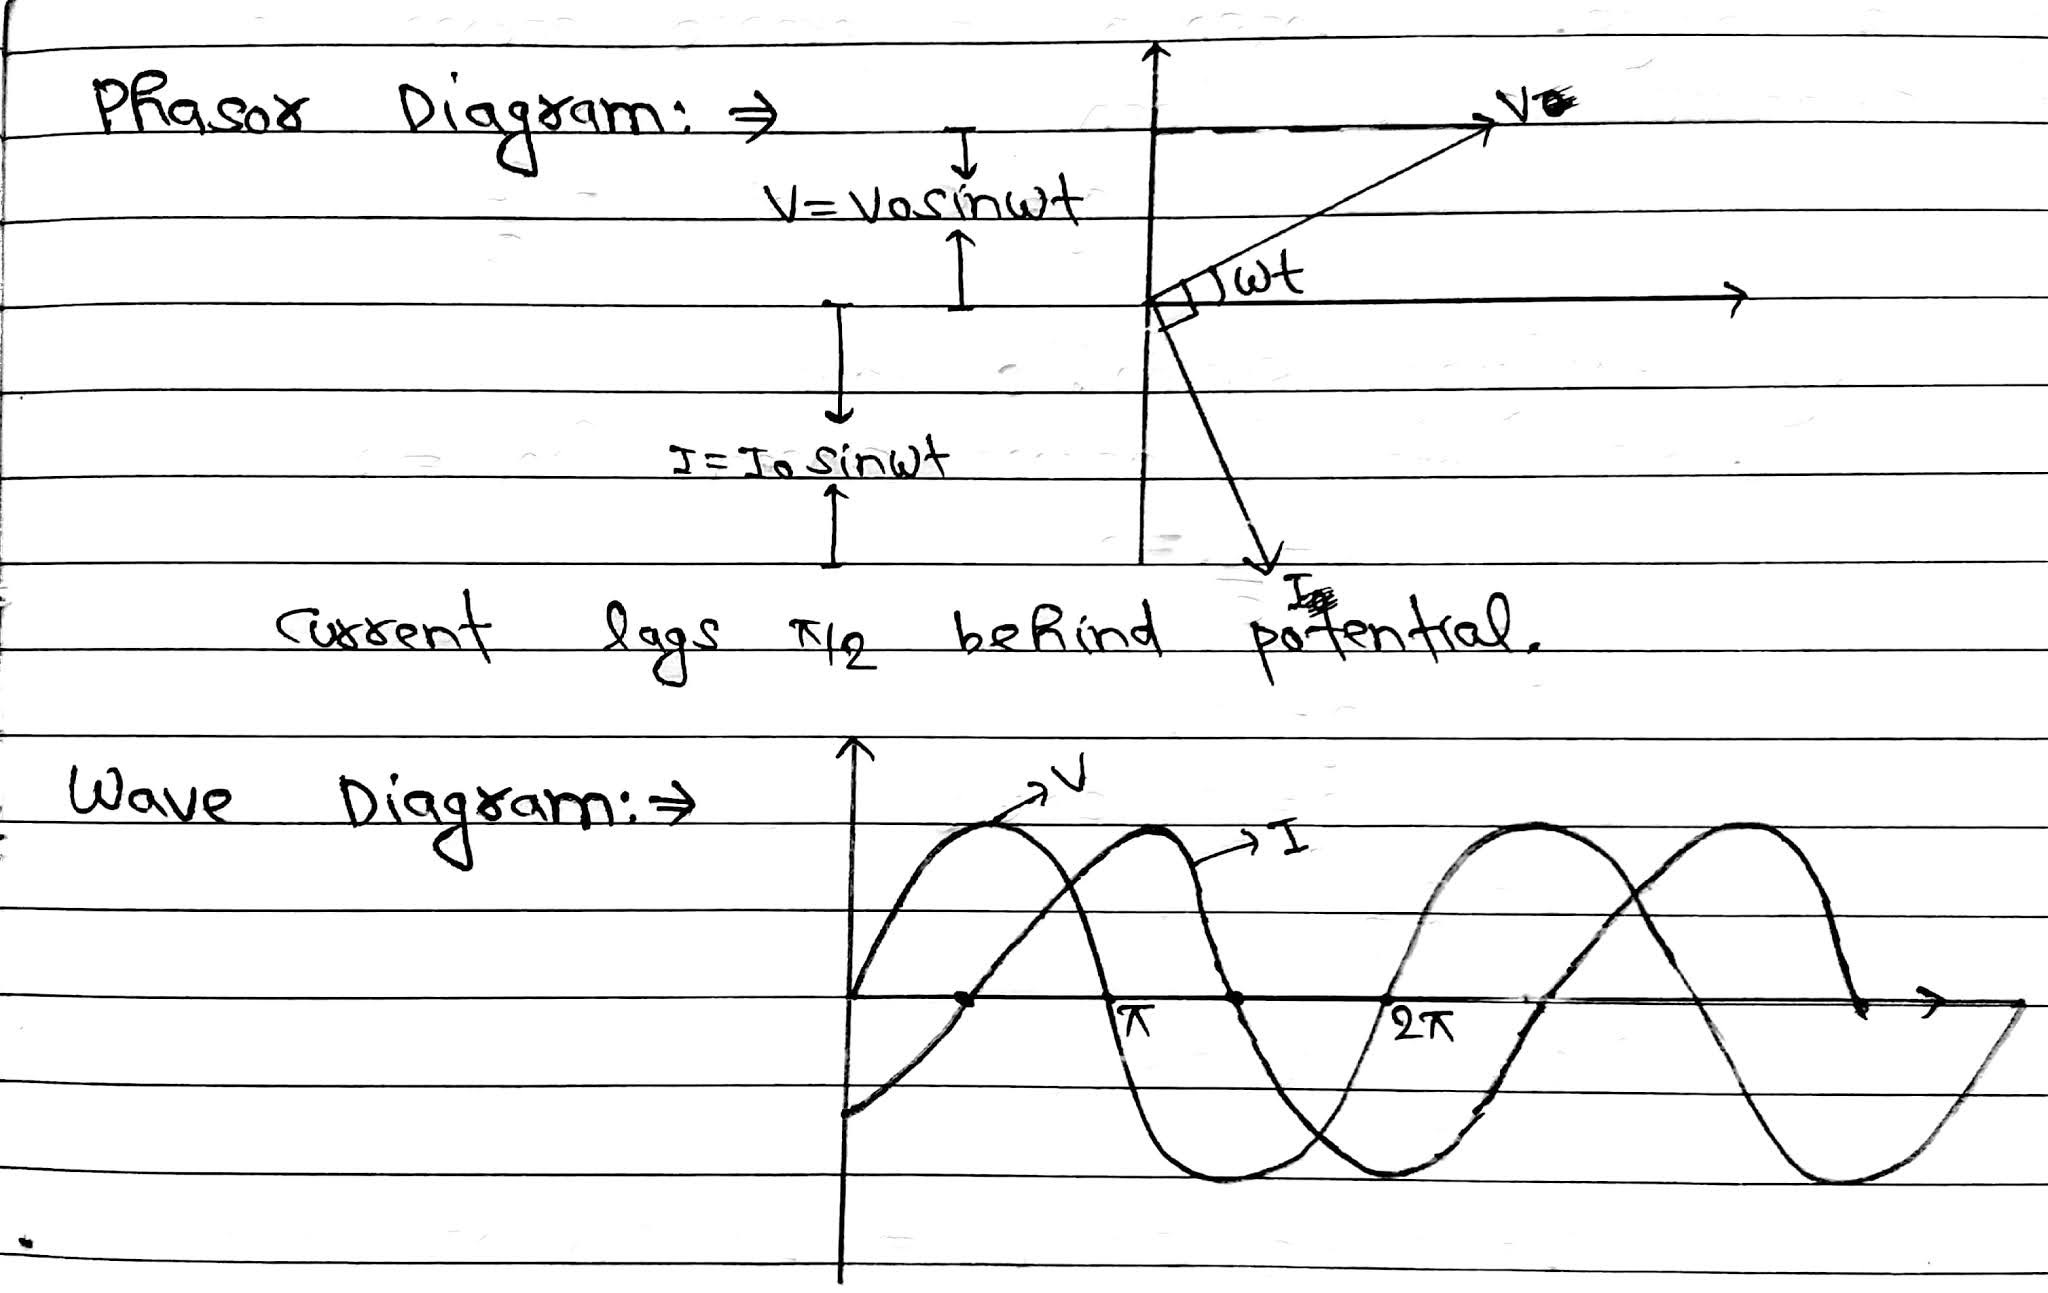 Phasor Diagram: ⇒
V
V = V0 sin ωt
ωt
I = I0 sin ωt
I
Current lags π/2 behind potential.
Wave Diagram: ⇒
V
I
π
2π